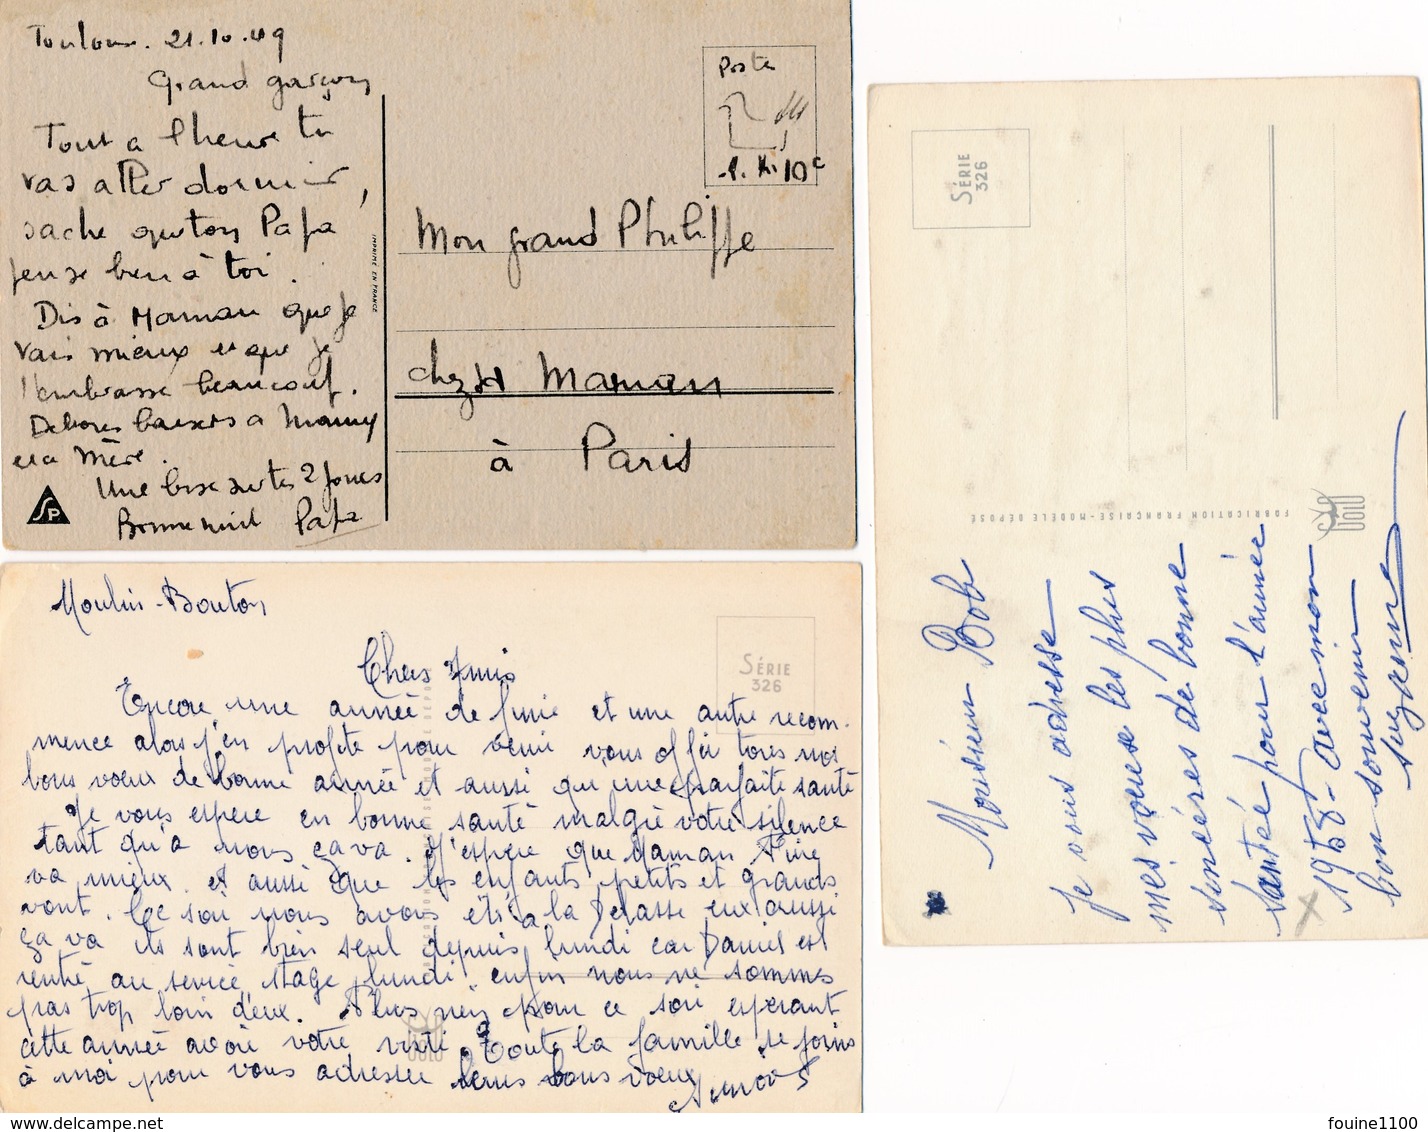 Toulouse. 21.10.49
Grand garçon
Tout a l'heure tu
vas aller dormir,
sache que ton Papa
pense bien à toi.
Dis à Maman que je
vais mieux et que je
l'embrasse beaucoup.
baisers a Mamy
et a Mère.
Une bise sur tes 2 joues
Bonne nuit Papa
SP
IMPRIMÉ EN FRANCE
Poste
10c
Mon grand Philippe
chez Maman
à Paris
Moulin-Bouton
SÉRIE
326
Chers Amis
Encore une année de finie et une autre recom-
mence alors j'en profite pour venir vous offrir tores nos
bons voeux de bonne année et aussi qu'une parfaite santé
Je vous espère en bonne santé malgré votre silence
tant qu'a nous ça va. J'espère que maman
va mieux. et aussi que les enfants petits et grands
vont. Ce soir nous avons étés a la Delasse eux aussi
ça va ils sont bien seul depuis lundi car Daniel est
rentré au service stage lundi. enfin nous ne sommes
pas trop loin d'eux. Plus rien pour ce soir espérant
cette année avoir votre visite. Toute la famille se joins
à moi pour vous adresser leurs bons voeux
SÉRIE
326
FABRICATION FRANÇAISE-MODÈLE DÉPOSÉ
Monsieur Bob
je vous adresse
mes voeuse les plus
sincéres de bonne
santée pour l'année
1958- avec mon
bon souvenir
suzanne
fouine1100